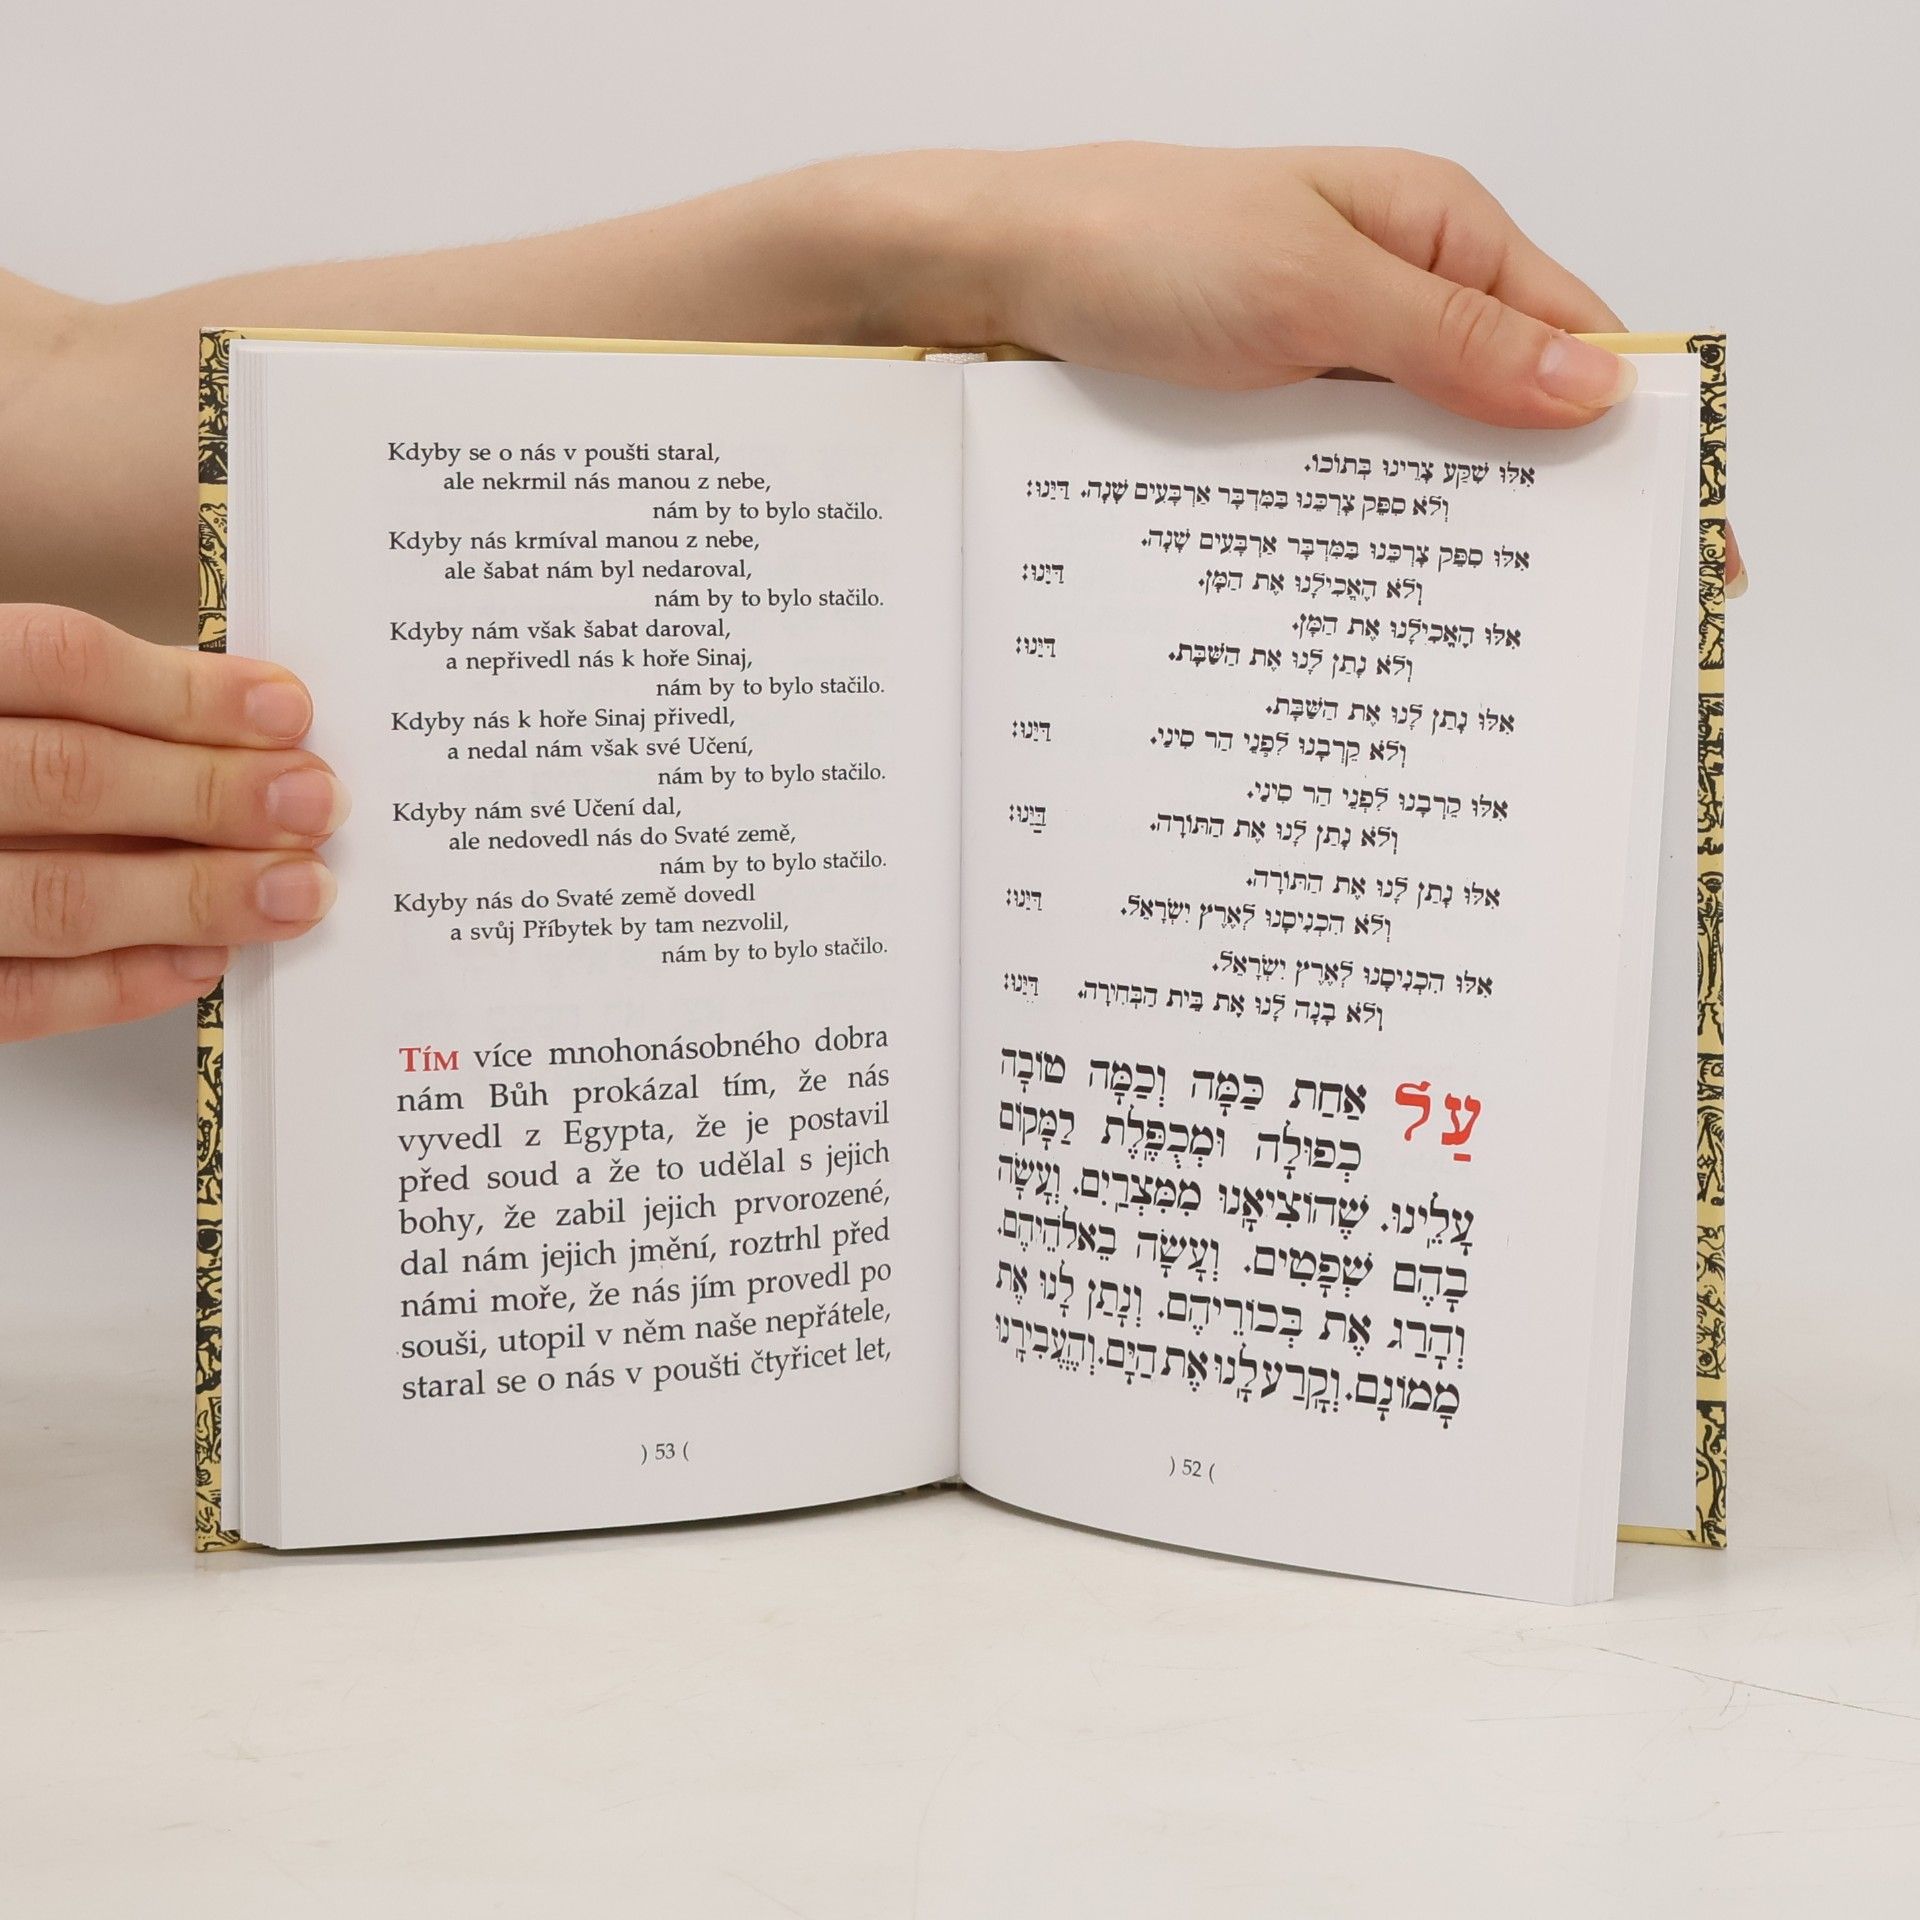 Kdyby se o nás v poušti staral,
ale nekrmil nás manou z nebe,
nám by to bylo stačilo.
Kdyby nás krmíval manou z nebe,
ale šabat nám byl nedaroval,
nám by to bylo stačilo.
Kdyby nám však šabat daroval,
a nepřivedl nás k hoře Sinaj,
nám by to bylo stačilo.
Kdyby nás k hoře Sinaj přivedl,
a nedal nám však své Učení,
nám by to bylo stačilo.
Kdyby nám své Učení dal,
ale nedovedl nás do Svaté země,
nám by to bylo stačilo.
Kdyby nás do Svaté země dovedl
a svůj Příbytek by tam nezvolil,
nám by to bylo stačilo.
Tím více mnohonásobného dobra
nám Bůh prokázal tím, že nás
vyvedl z Egypta, že je postavil
před soud a že to udělal s jejich
bohy, že zabil jejich prvorozené,
dal nám jejich jmění, roztrhl před
námi moře, že nás jím provedl po
souši, utopil v něm naše nepřátele,
staral se o nás v poušti čtyřicet let,
) 53 (
אִלּוּ שִׁקַּע צָרֵינוּ בְּתוֹכוֹ.
וְלֹא סִפֵּק צָרְכֵּנוּ בַּמִּדְבָּר אַרְבָּעִים שָׁנָה. דַּיֵּנוּ:
אִלּוּ סִפֵּק צָרְכֵּנוּ בַּמִּדְבָּר אַרְבָּעִים שָׁנָה.
וְלֹא הֶאֱכִילָנוּ אֶת הַמָּן. דַּיֵּנוּ:
אִלּוּ הֶאֱכִילָנוּ אֶת הַמָּן.
וְלֹא נָתַן לָנוּ אֶת הַשַּׁבָּת. דַּיֵּנוּ:
אִלּוּ נָתַן לָנוּ אֶת הַשַּׁבָּת.
וְלֹא קֵרְבָנוּ לִפְנֵי הַר סִינַי. דַּיֵּנוּ:
אִלּוּ קֵרְבָנוּ לִפְנֵי הַר סִינַי.
וְלֹא נָתַן לָנוּ אֶת הַתּוֹרָה. דַּיֵּנוּ:
אִלּוּ נָתַן לָנוּ אֶת הַתּוֹרָה.
וְלֹא הִכְנִיסָנוּ לְאֶרֶץ יִשְׂרָאֵל. דַּיֵּנוּ:
אִלּוּ הִכְנִיסָנוּ לְאֶרֶץ יִשְׂרָאֵל.
וְלֹא בָנָה לָנוּ אֶת בֵּית הַבְּחִירָה. דַּיֵּנוּ:
עַל אַחַת כַּמָּה וְכַמָּה טוֹבָה
כְפוּלָה וּמְכֻפֶּלֶת לַמָּקוֹם
עָלֵינוּ. שֶׁהוֹצִיאָנוּ מִמִּצְרַיִם. וְעָשָׂה
בָהֶם שְׁפָטִים. וְעָשָׂה בֵאלֹהֵיהֶם.
וְהָרַג אֶת בְּכוֹרֵיהֶם. וְנָתַן לָנוּ אֶת
מָמוֹנָם. וְקָרַע לָנוּ אֶת הַיָּם. וְהֶעֱבִירָנוּ
) 52 (